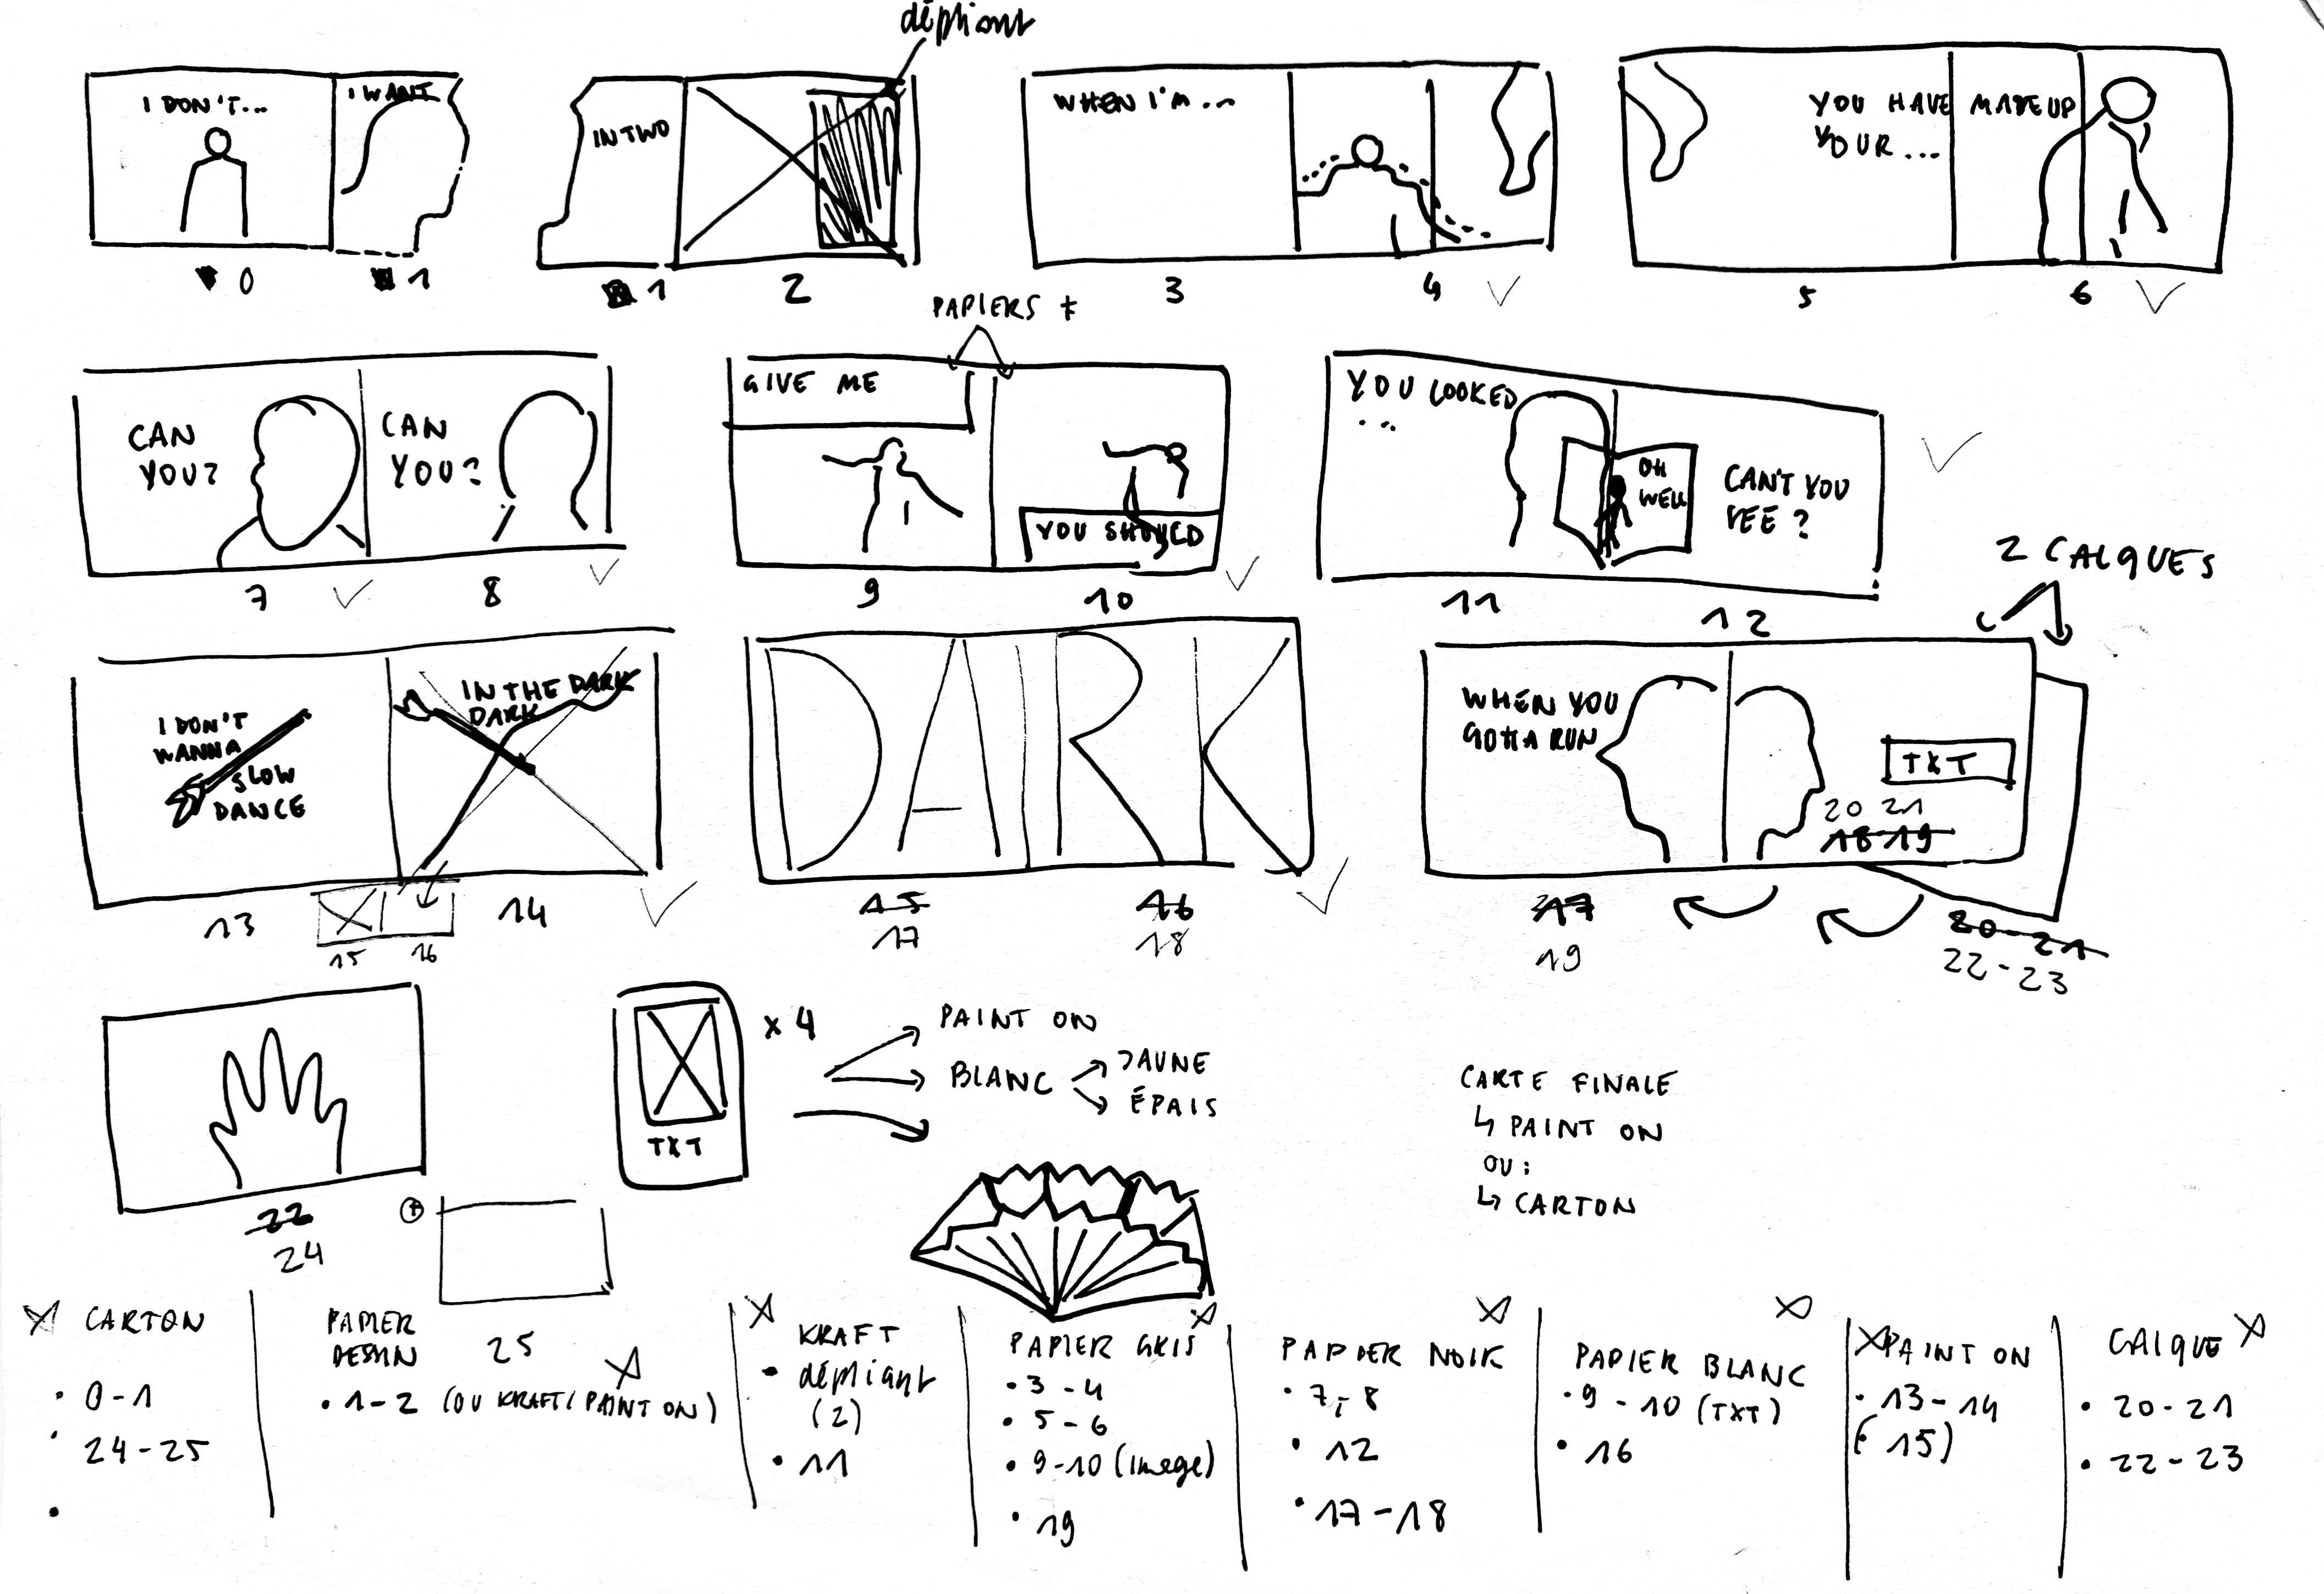 dépliant
I DON'T...
I WANT
0
1
IN TWO
1
2
WHEN I'M ...
3
4
YOU HAVE MADE UP
YOUR ...
5
6
CAN
YOU?
7
CAN
YOU?
8
PAPIERS ≠
GIVE ME
YOU SHOULD
9
10
YOU LOOKED
...
OH
WELL
CAN'T YOU
SEE ?
11
12
2 CALQUES
I DON'T
WANNA
SLOW
DANCE
IN THE DARK
DARK
13
14
15
16
DARK
15
16
17
18
WHEN YOU
GOTTA RUN
TXT
20 21
18-19
17
19
20-21
22-23
22
24
+
25
TXT
x 4
PAINT ON
BLANC
JAUNE
ÉPAIS
CARTE FINALE
PAINT ON
OU :
CARTON
CARTON
• 0-1
• 24-25
•
PAPIER
DESSIN
• 1-2 (OU KRAFT/PAINT ON)
KRAFT
• dépliant
(2)
• 11
PAPIER GRIS
• 3-4
• 5-6
• 9-10 (image)
• 19
PAPIER NOIR
• 7-8
• 12
• 17-18
PAPIER BLANC
• 9-10 (TXT)
• 16
PAINT ON
• 13-14
(• 15)
CALQUE
• 20-21
• 22-23